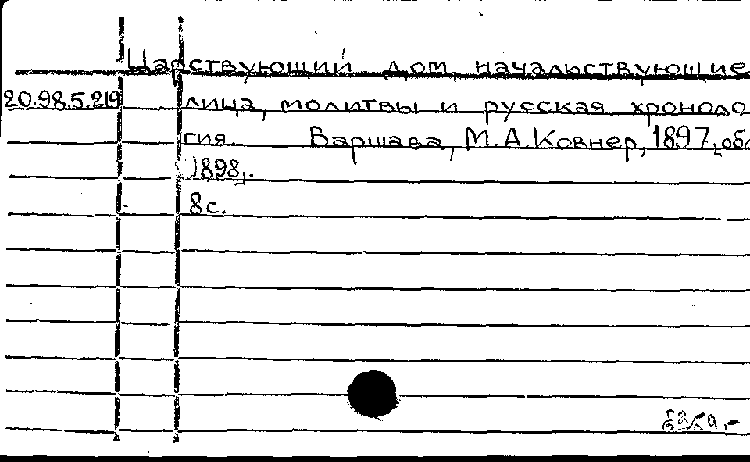 Царствующий дом, начальствующие
20.98.5.219 лица, молитвы и русская хроноло
гия. Варшава, М.А.Ковнер, 1897, обл.
1898.
8с.